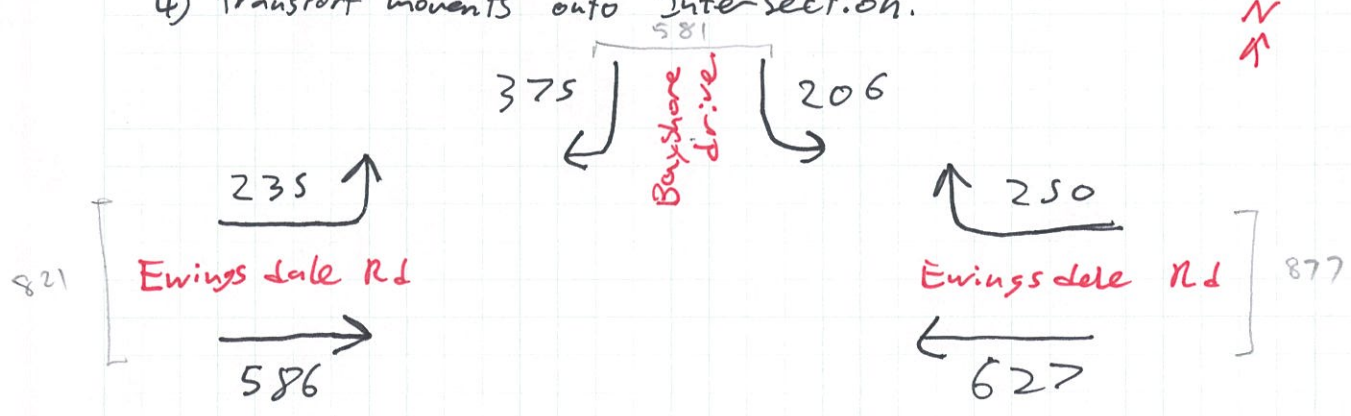 4) Transport movents onto Intersection.
N
581
375
Bayshore
drive
206
235
250
821
Ewingsdale Rd
Ewingsdele Rd
877
586
627